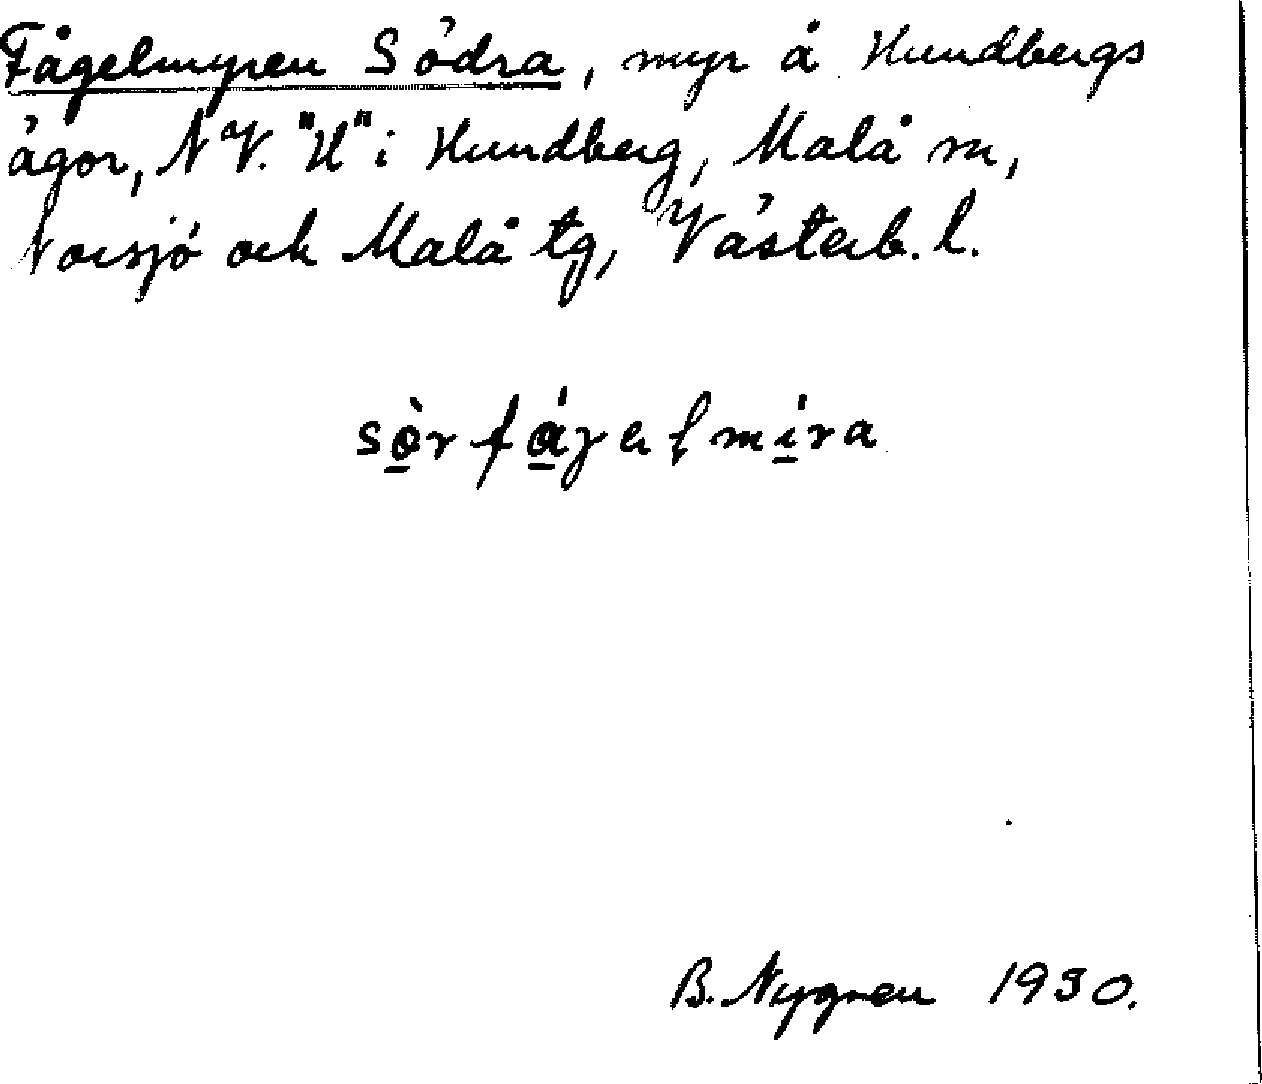 Fågelmyren Södra, myr å Hundbergs
ägor, NV. "H" i Hundberg, Malå sn,
Norsjö och Malå tg, Västerb. l.
sòrfáge lmíra
B. Nygren 1930.